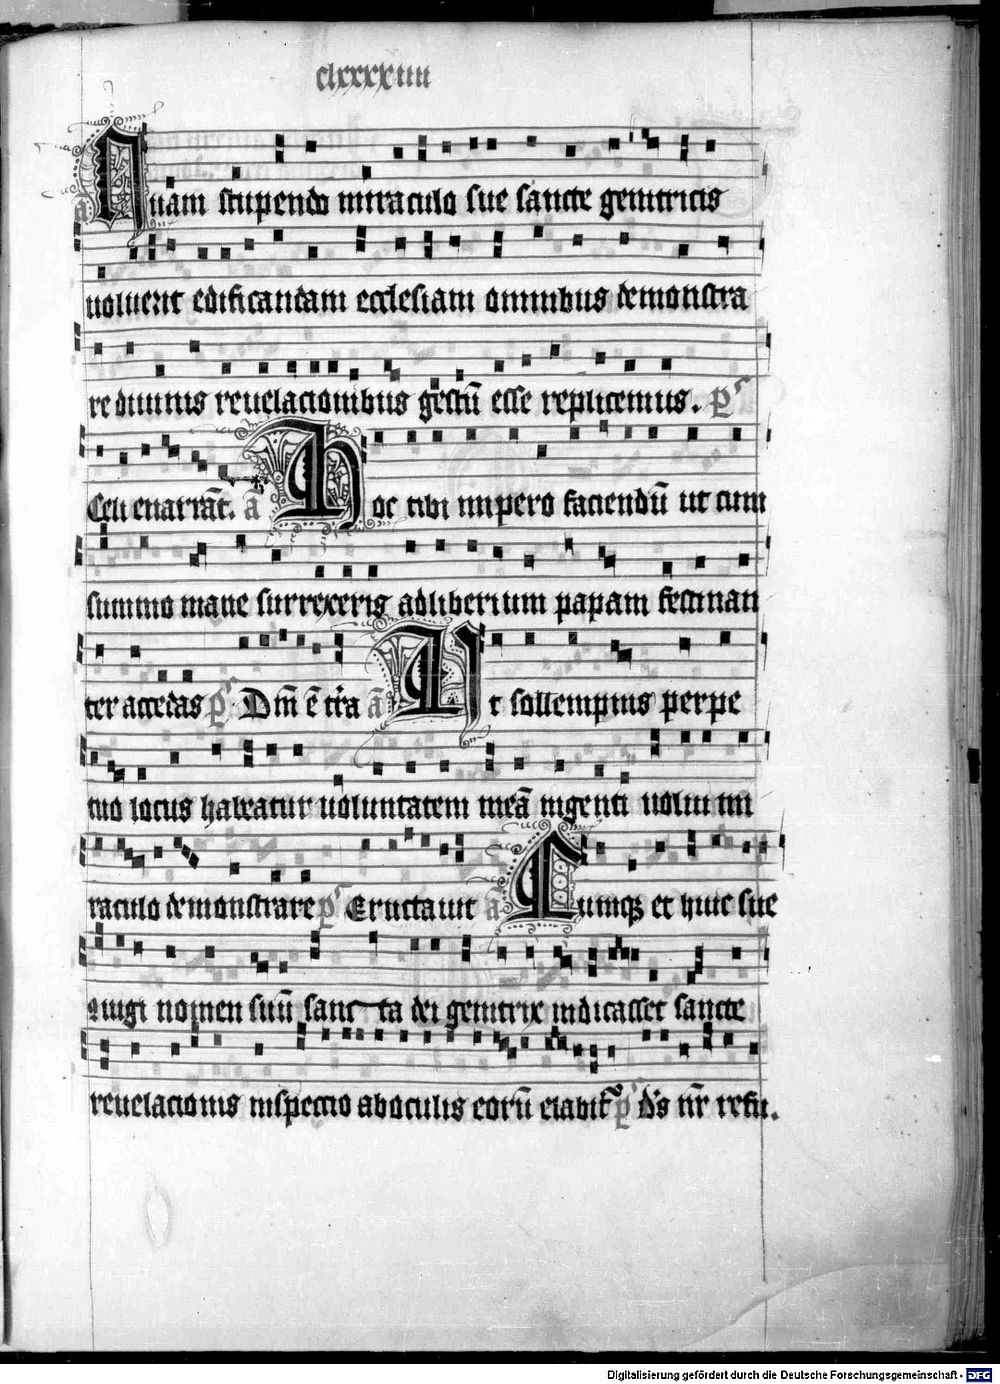 clxxxxiiii
Quam stupendo miraculo sue sancte genitricis
uoluerit edificandam ecclesiam omnibus demonstra
re diuinis reuelacionibus gestū esse replicemus. pˢ
Celi enarrāt. ā Hoc tibi impero faciendū ut cum
summo mane surrexeris ad liberium papam festinan
ter accedas pˢ Dn̄i ē t̄ra ā Ut sollempnis perpe
tuo locus habeatur uoluntatem meā ingenti uolui mi
raculo demonstrare pˢ Eructauit ā Cumqꝫ et huic sue
iugi nomen suū sancta dei genitrix indicasset sancte
reuelacionis inspectio ab oculis eorū elabit᷑ pˢ d̄s nr̄ refu.
Digitalisierung gefördert durch die Deutsche Forschungsgemeinschaft - DFG